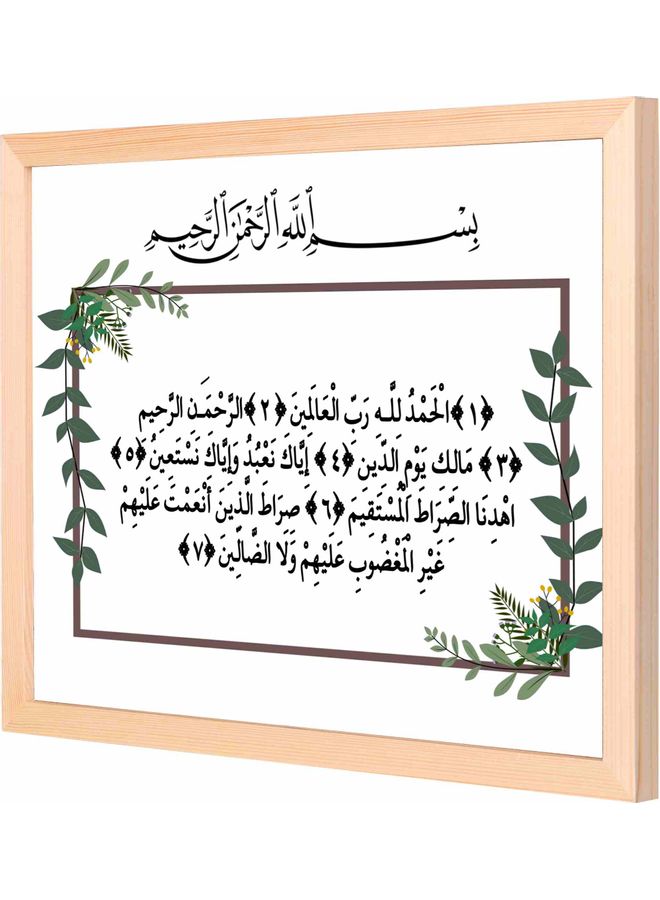 بِسْمِ ٱللَّهِ ٱلرَّحْمَٰنِ ٱلرَّحِيمِ
﴿١﴾ الْحَمْدُ لِلَّـهِ رَبِّ الْعَالَمِينَ ﴿٢﴾ الرَّحْمَـٰنِ الرَّحِيمِ
﴿٣﴾ مَالِكِ يَوْمِ الدِّينِ ﴿٤﴾ إِيَّاكَ نَعْبُدُ وَإِيَّاكَ نَسْتَعِينُ ﴿٥﴾
اهْدِنَا الصِّرَاطَ الْمُسْتَقِيمَ ﴿٦﴾ صِرَاطَ الَّذِينَ أَنْعَمْتَ عَلَيْهِمْ
غَيْرِ الْمَغْضُوبِ عَلَيْهِمْ وَلَا الضَّالِّينَ ﴿٧﴾